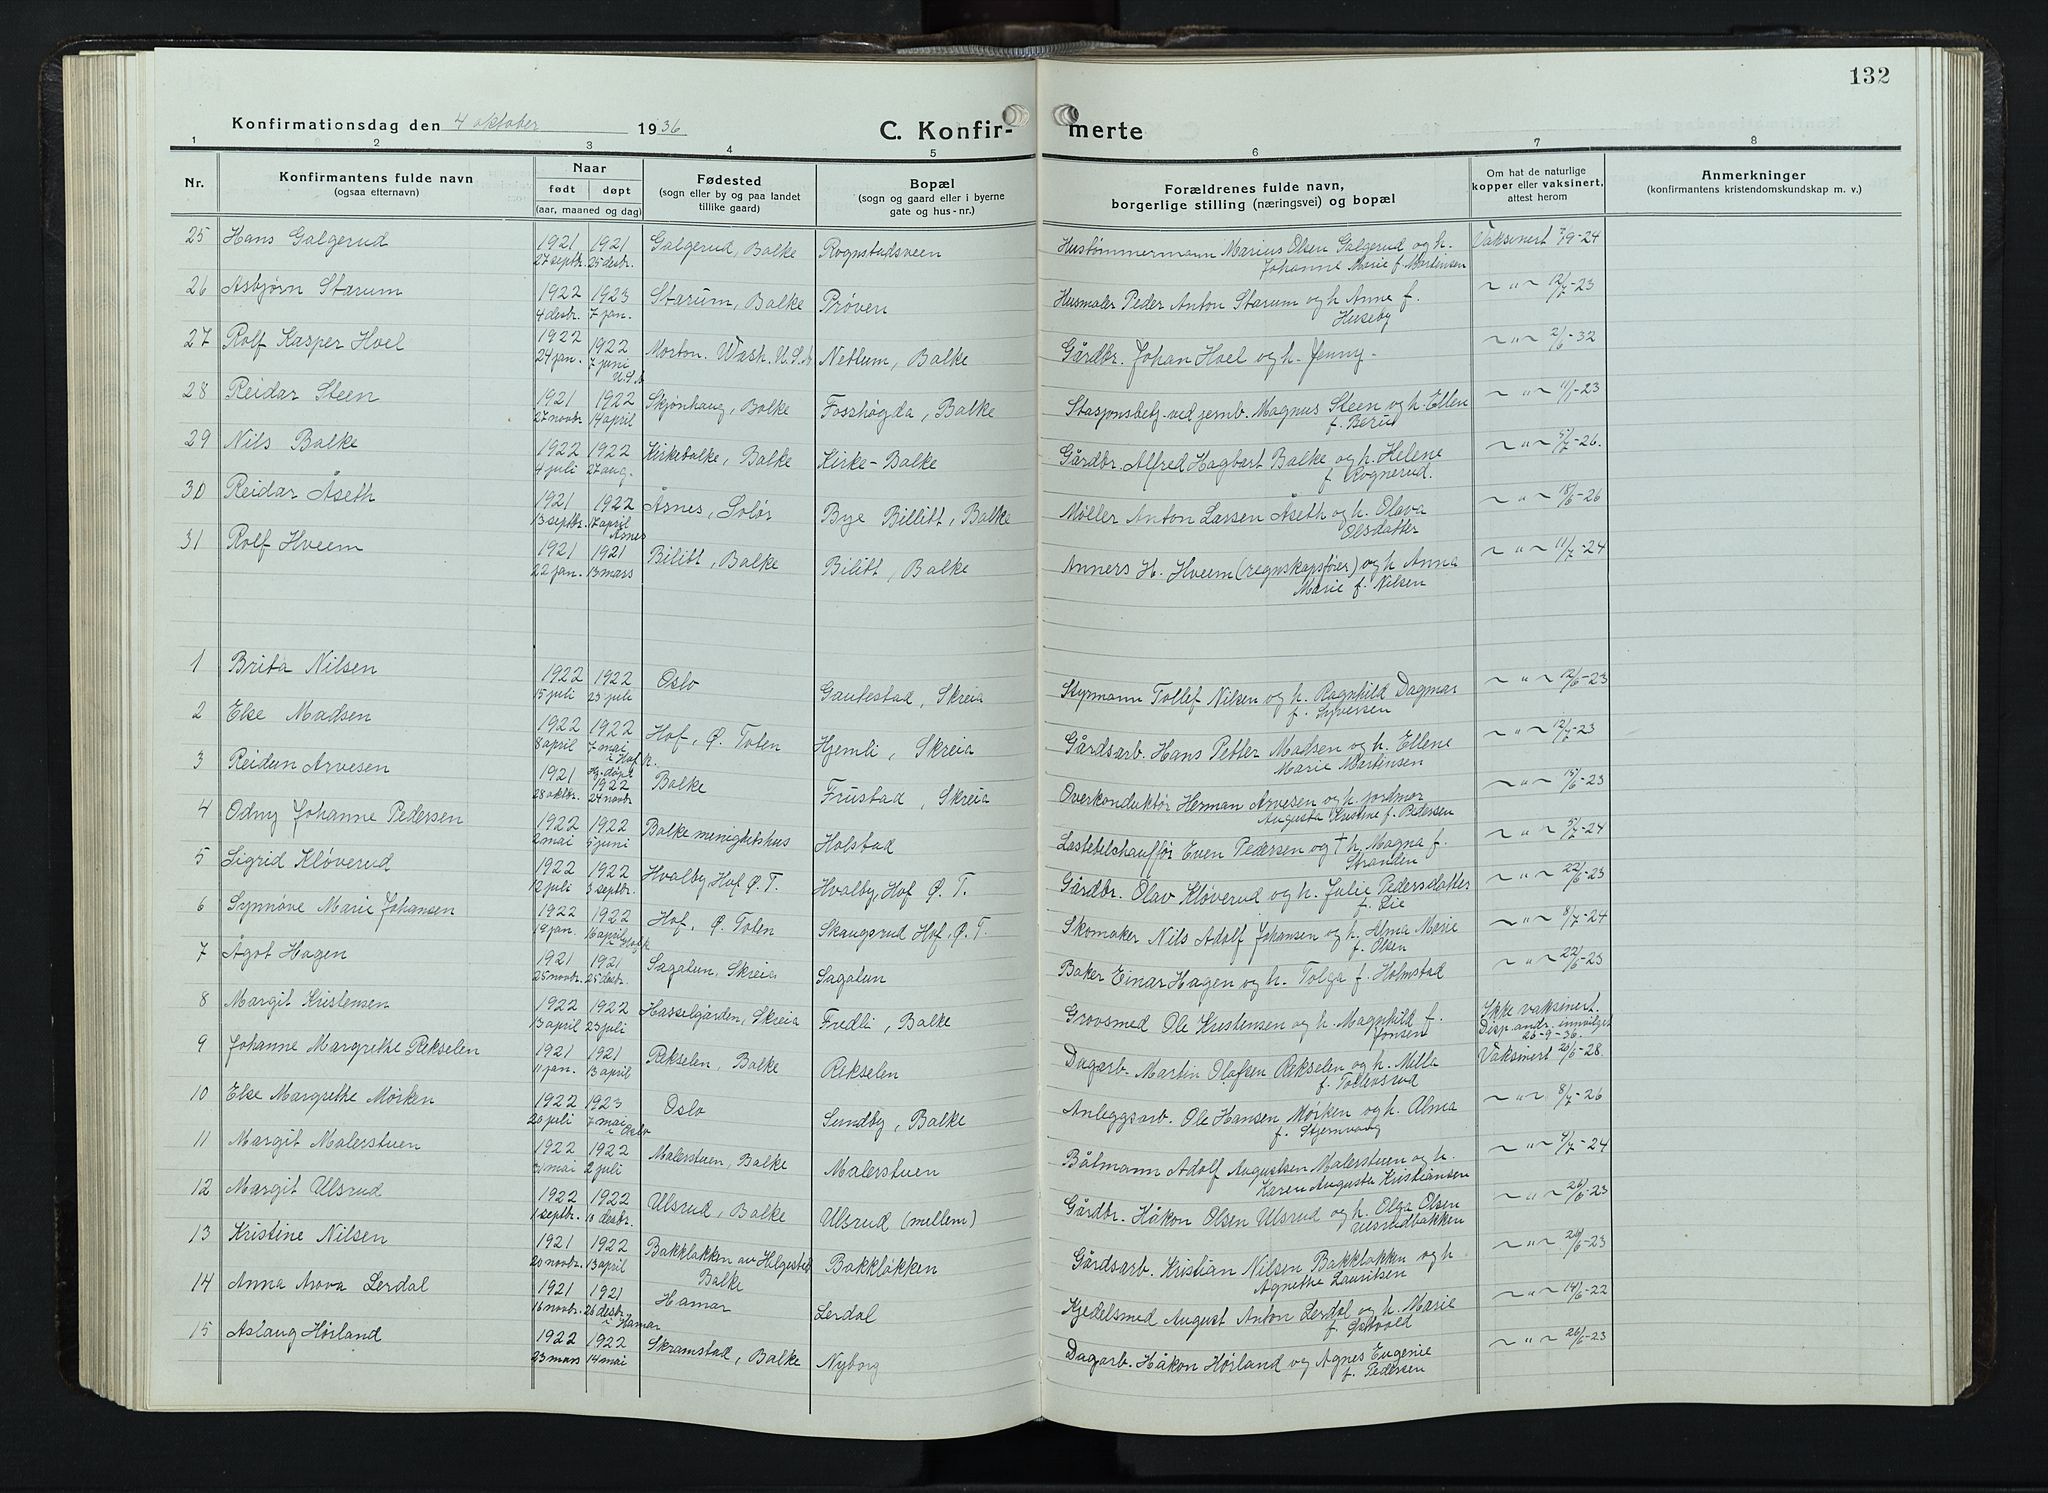 132
Konfirmationsdag den 4 oktober 1936 C. Konfir- merte
1 2 3 4 5 6 7 8
Nr. Konfirmantens fulde navn (ogsaa efternavn) Naar født døpt (aar, maaned og dag) Fødested (sogn eller by og paa landet tillike gaard) Bopæl (sogn og gaard eller i byerne gate og hus-nr.) Forældrenes fulde navn, borgerlige stilling (næringsvei) og bopæl Om hat de naturlige kopper eller vaksinert, attest herom Anmerkninger (konfirmantens kristendomskundskap m. v.)
25 Hans Galgerud 1921 1921 Galgerud, Balke Rognstadsveen Hustømmermann Marius Olsen Galgerud og h. Vaksinert 7/9-24
27 septbr. 25 desbr. Johanne Marie f. Martinsen
26 Asbjørn Starum 1922 1923 Starum, Balke Prøven Husmaler Peder Anton Starum og h. Anne f. ~ " ~ 12/7-23
4 desbr. 7 jan. Huseby
27 Rolf Kasper Hoel 1922 1922 Morton. Wash. U.S.A Nettum, Balke Gårdbr. Johan Hoel og h. Jenny- ~ " ~ 2/6-32
24 jan. 7 juni U.S.A
28 Reidar Steen 1921 1922 Skjønhaug, Balke Fosshøgda, Balke Stasjonsbetj. ved jernb. Magnus Steen og h. Ellen ~ " ~ 11/7-23
27 novbr. 14 april f. Berud
29 Nils Balke 1922 1922 Kirkebalke, Balke Kirke-Balke Gårdbr. Alfred Hagbart Balke og h. Helene ~ " ~ 5/7-26.
4 juli 27 aug. f. Rognerud.
30 Reidar Åseth 1921 1922 Åsnes, Solør Bye Billitt, Balke Møller Anton Larsen Åseth og h. Olava ~ " ~ 18/6-26
13 septbr. 17 april Åsnes Olsdatter
31 Rolf Hveem 1921 1921 Bilitt, Balke Bilitt, Balke Anners H. Hveem (regnskapsfører) og h. Anna ~ " ~ 11/7-24
22 jan. 13 mars Marie f. Nilsen
1 Brita Nilsen 1922 1922 Oslo Gautestad, Skreia Styrmann Tollef Nilsen og h. Ragnhild Dagmar ~ " ~ 12/6-23
15 juli 23 juli f. Syversen
2 Else Madsen 1922 1922 Hof, Ø. Toten Hjemli, Skreia Gårdsarb. Hans Petter Madsen og h. Ellene ~ " ~ 12/7-23
8 april 7 mai i Hof k. Marie Martinsen
3 Reidun Arvesen 1921 Hj. døpt 1922 Balke Frustad, Skreia Overkonduktør Herman Arvesen og h. jordmor ~ " ~ 15/6-23
28 oktbr. 24 novbr Augusta Kristine f. Pedersen
4 Odny Johanne Pedersen 1922 1922 Balke menighetshus Holstad Lastebilchauffør Even Pedersen og † h. Magna f. ~ " ~ 5/7-24
2 mai 5 juni Stranden
5 Sigrid Kløverud 1922 1922 Hvalby, Hof Ø. T. Hvalby, Hof Ø. T. Gårdbr. Olav Kløverud og h. Julie Pedersdatter ~ " ~ 22/6-23
12 juli 3 septbr. f. Lie
6 Synnøve Marie Johansen 1922 1922 Hof, Ø. Toten Skaugsrud Hof, Ø. T. Skomaker Nils Adolf Johansen og h. Alma Marie ~ " ~ 8/7-24
19 jan. 16 april i Hof k f. Olsen
7 Ågot Hagen 1921 1921 Sagatun, Skreia Sagatun Baker Einar Hagen og h. Tolga f. Holmstad ~ " ~ 22/6-23
25 novbr. 25 desbr.
8 Margit Kristensen 1922 1922 Hasselgården, Skreia Fredli, Balke Grovsmed Ole Kristensen og h. Magnhild f. Ikke vaksinert.
13 april 23 juli Jonsen Disp.andr. innvilget 26-9-36.
9 Johanne Margrethe Rekselen 1921 1921 Rekselen, Balke Rekselen Dagarb. Martin Olafsen Rekselen og h. Milla Vaksinert 20/6-28.
11 jan. 13 april f. Tollevsrud
10 Else Margrethe Mørken 1922 1923 Oslo Sundby, Balke Anleggsarb. Ole Hansen Mørken og h. Alma ~ " ~ 8/7-26
20 juli 7 mai i Oslo f. Stjernvang
11 Margit Malerstuen 1922 1922 Malerstuen, Balke Malerstuen Båtmann Adolf Augustsen Malerstuen og h. ~ " ~ 4/7-24
mai 2 juli Karen Augusta Kristiansen
12 Margit Ulsrud 1922 1922 Ulsrud, Balke Ulsrud (mellem) Gårdbr. Håkon Olsen Ulsrud og h. Olga Olsen ~ " ~ 26/6-23
1 septbr. 10 desbr. Ulsrudbakken
13 Kristine Nilsen 1921 1922 Bakkløkken av Helgestad Bakkløkken Gårdsarb. Kristian Nilsen Bakkløkken og h ~ " ~ 26/6-23
20 novbr. 13 april Balke Agnethe Lauritsen
14 Anna Arova Lerdal 1921 1921 Hamar Lerdal Kjedelsmed August Anton Lerdal og h. Marie ~ " ~ 14/6-22
16 novbr. 26 desbr i Hamar f. Østvold
15 Aslaug Hørland 1922 1922 Skramstad, Balke Nyborg Dagarb. Håkon Hørland og Agnes Eugenie ~ " ~ 26/6-23
23 mars 14 mai f. Pedersen